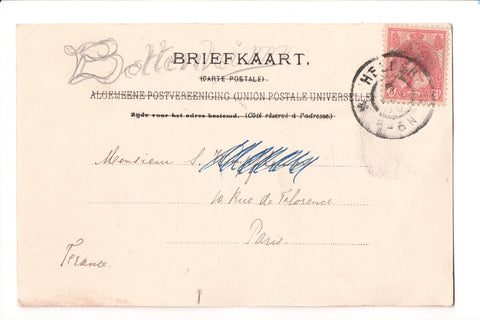 BRIEFKAART.
(CARTE POSTALE)
ALGEMEENE POSTVEREENIGING (UNION POSTALE UNIVERSELLE)
Zijde voor het adres bestemd. (Côté réservé à l'adresse.)
Monsieur S.
10 Rue de Florence
Paris.
France.